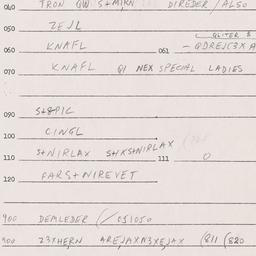 040 TRON QW S+MIRN DIREDER / ALSO
050 ZEJL
060 KNAFL 061 – QDREJC3X A
070 KNAFL QI NEX SPECIAL LADIES
080
090 S+&PIC
100 CINGL
110 S+NIRLAX S+KS+NIRLAX 111 0
120 FARS+NIREVET
900 DEMLEDER (/051050
900 Z3THERN AREJAXM3XEJAX (811 (820